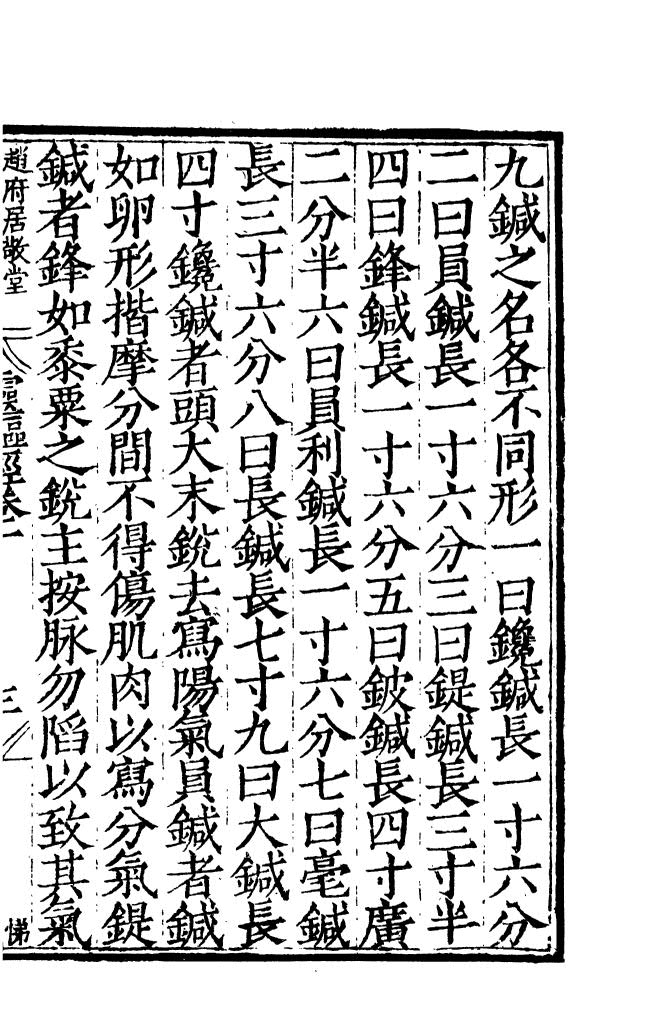 九鍼之名各不同形一曰鑱鍼長一寸六分
二曰員鍼長一寸六分三曰鍉鍼長三寸半
四曰鋒鍼長一寸六分五曰鈹鍼長四寸廣
二分半六曰員利鍼長一寸六分七曰毫鍼
長三寸六分八曰長鍼長七寸九曰大鍼長
四寸鑱鍼者頭大末銳去寫陽氣員鍼者鍼
如卵形揩摩分間不得傷肌肉以寫分氣鍉
鍼者鋒如黍粟之銳主按脉勿陷以致其氣
趙府居敬堂 三 悌